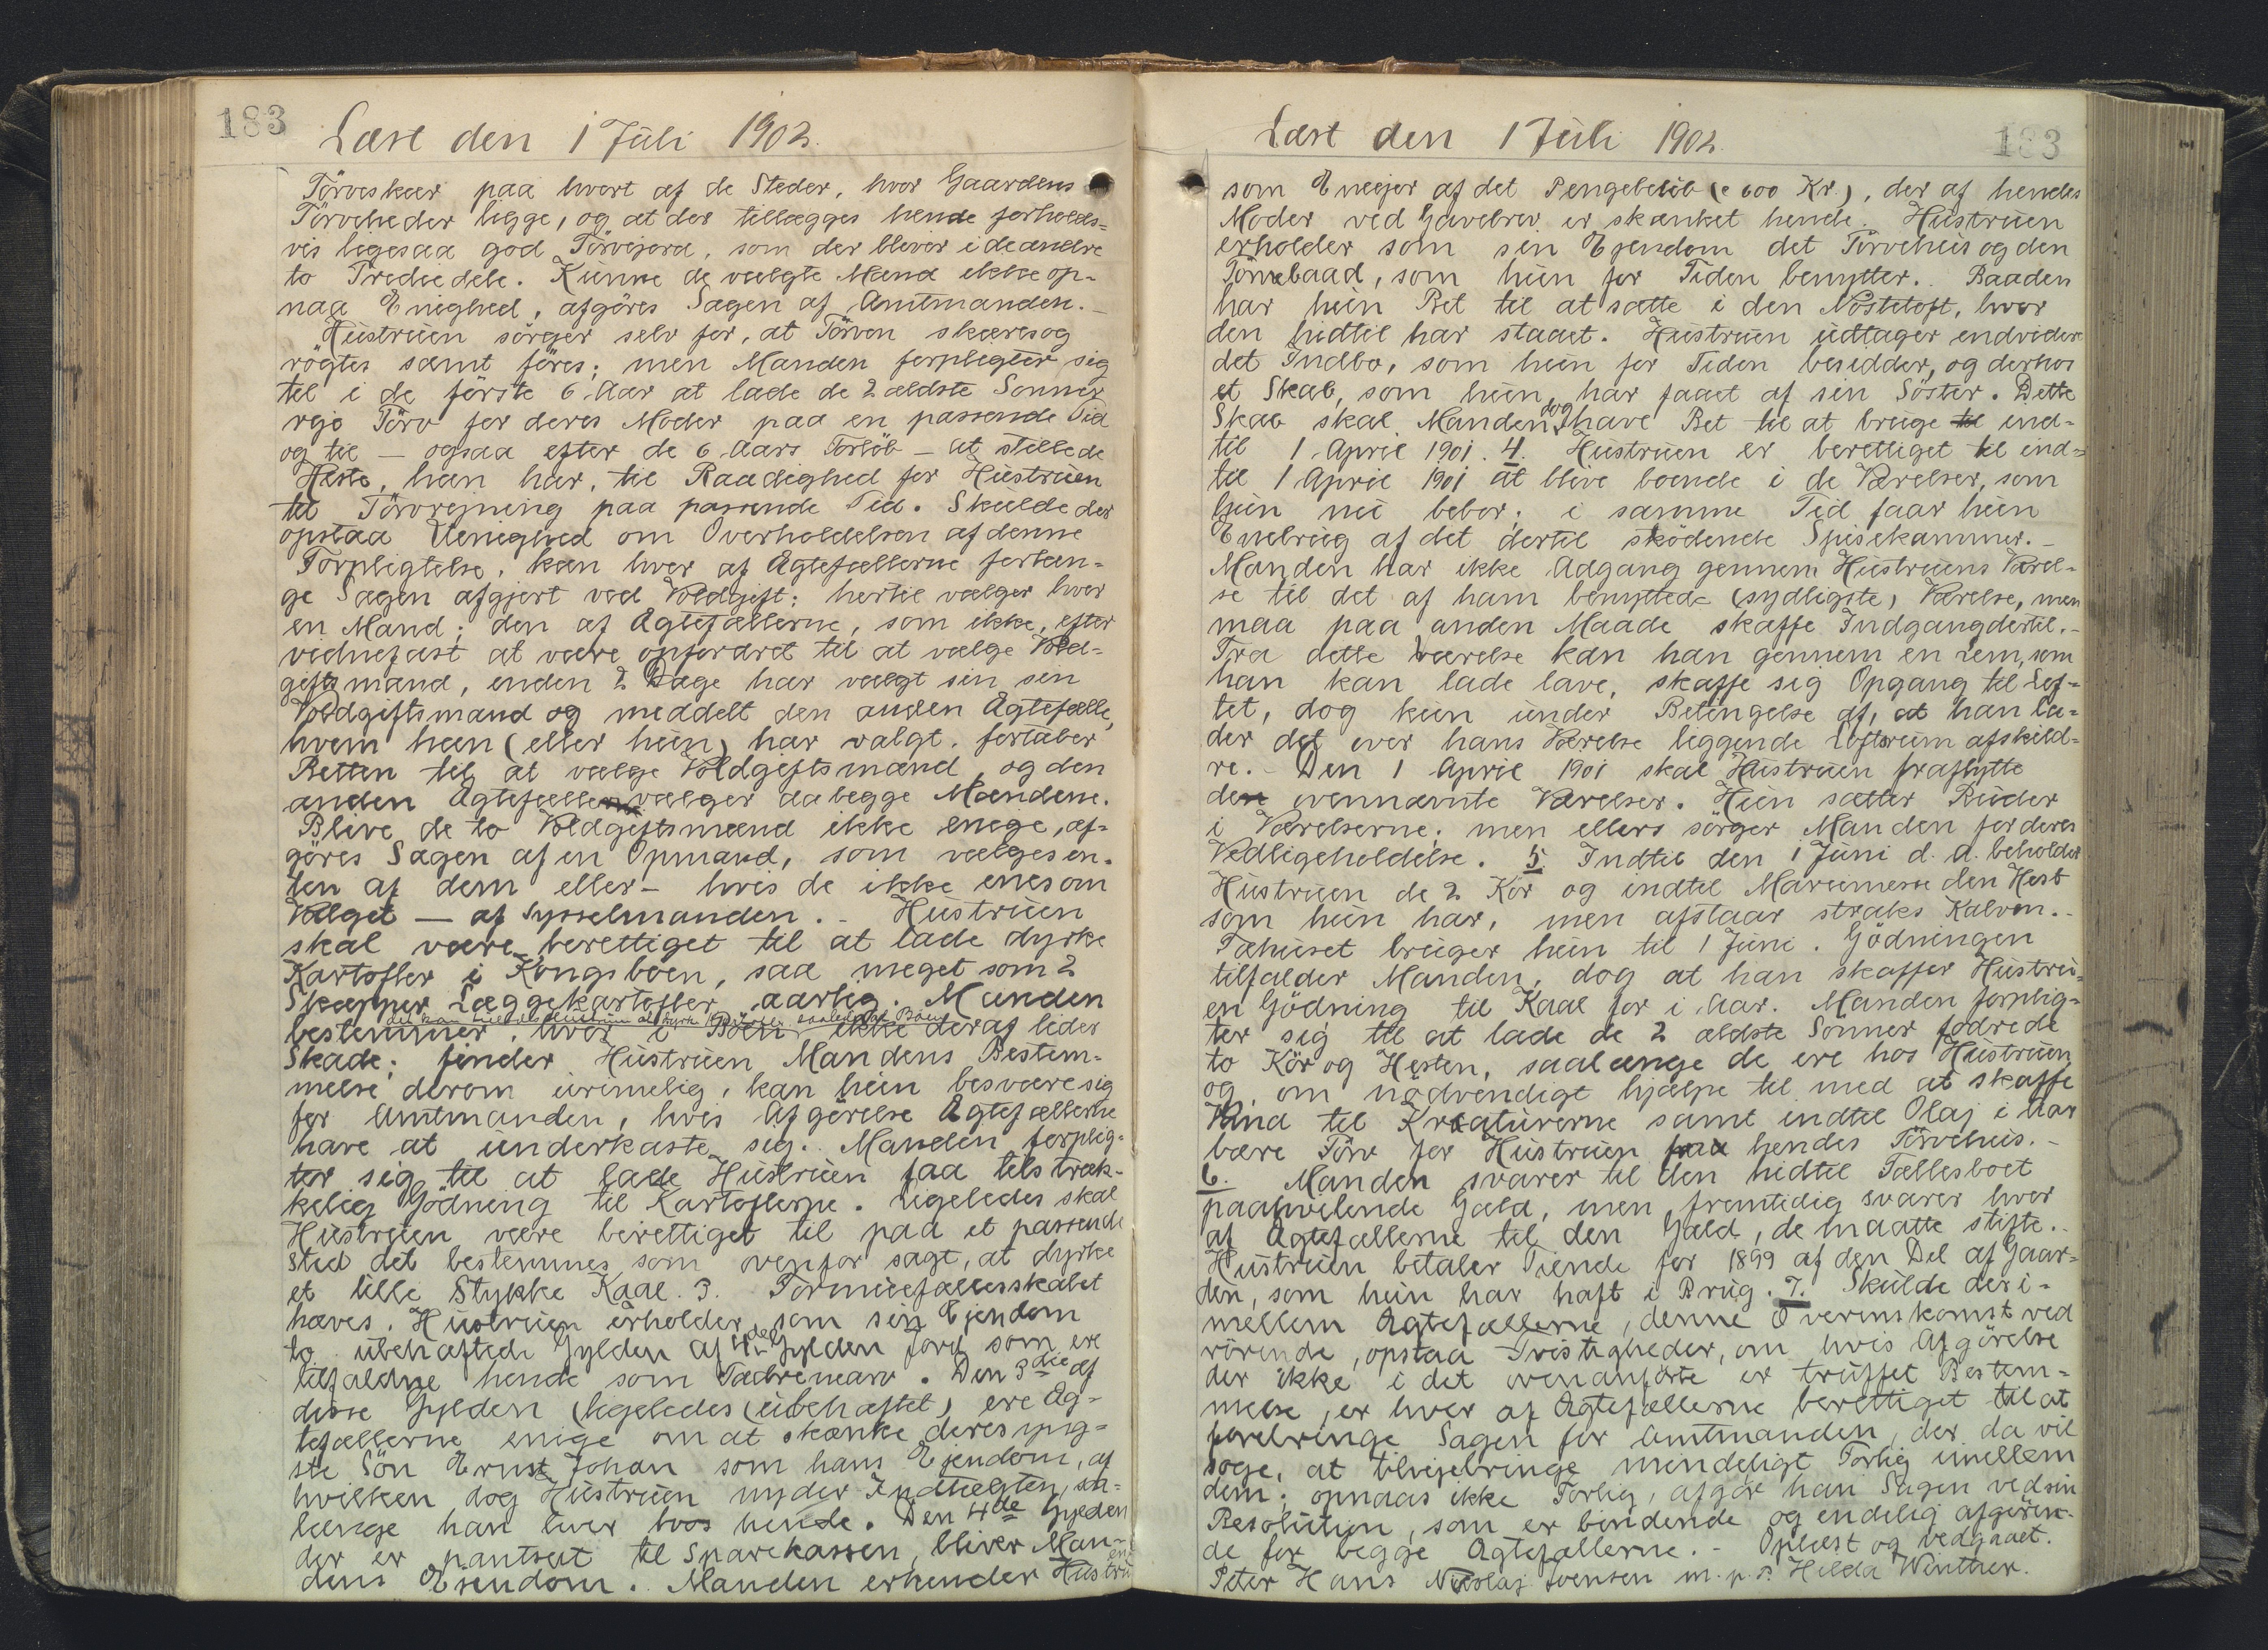 183
Læst den 1 Juli 1902.
Törveskær paa hvert af de Steder, hvor Gaardens
Törveheder ligge, og at der tillægges hende forholds=
vis ligesaa god Törvejord, som der bliver i de andre
to Trediedele. Kunne de valgte Mænd ikke op-
naa Enighed, afgöres Sagen af Amtmanden.-
Hustruen sörger selv for, at Törven skæres og
rögtes samt föres; men Manden forpligter sig
til i de förste 6 Aar at lade de 2 ældste Sönner
reje Törv for deres Moder paa en passende Tid
og til - ogsaa efter de 6 Aars Forlöb - at stille de
Heste, han har, til Raadighed for Hustruen
til Törvrejning paa passende Tid. Skulde der
opstaa Uenighed om Overholdelsen af denne
Forpligtelse, kan hver af Ægtefællerne forlan-
ge Sagen afgjort ved Voldgift; hertil vælger hver
en Mand; den af Ægtefællerne, som ikke, efter
vidnefast at være opfordret til at vælge Vold-
giftsmand, inden 2 Dage har valgt sin sin
Voldgiftsmand og meddelt den anden Ægtefælle,
hvem han (eller hun) har valgt, fortaber
Retten til at vælge Voldgiftsmand, og den
anden Ægtefælle vælger da begge Mændene.
Blive de to Voldgiftsmænd ikke enige, af-
göres Sagen af en Opmand, som vælges en-
ten af dem eller - hvis de ikke enes om
Valget - af Sysselmanden. - Hustruen
skal være berettiget til at lade dyrke
Kartofler i Kongsboen, saa meget som 2
Skæpper Læggekartofler aarlig. Manden
bestemmer, hvor i Böen ikke deraf lider
Skade; finder Hustruen Mandens Bestem-
melse derom urimelig, kan hun besvære sig
for Amtmanden, hvis Afgörelse Ægtefællerne
have at underkaste sig. Manden forplig-
ter sig til at lade Hustruen faa tilstræk-
kelig Gödning til Kartoflerne. Ligeledes skal
Hustruen være berettiget til paa et passende
Sted det bestemmes som ovenfor sagt, at dyrke
et lille Stykke Kaal. 3. Formuefællesskabet
hæves. Hustruen erholder som sin Ejendom
to ubehæftede Gylden af de 4 Gylden Jord som ere
tilfaldne hende som Fædrenearv. Den 3die af
disse Gylden (ligeledes ubehæftet) ere Æg-
tefællerne enige om at skænke deres yng-
ste Sön Ernst Johan som hans Ejendom, af
hvilken dog Hustruen nyder Indtægten, saa-
længe han lever hos hende. Den 4de Gylden
der er pantsat til Sparekassen, bliver Man-
dens Ejendom. Manden erkender Hustruen
Læst den 1 Juli 1902.
183
som Eneejer af det Pengebelöb (c 600 Kr.), der af hendes
Moder ved Gavebrev er skænket hende. Hustruen
erholder som sin Ejendom det Törvehus og den
Törvebaad, som hun for Tiden benytter. Baaden
har hun Ret til at sætte i den Nöstetoft, hvor
den hidtil har staaet. Hustruen udtager endvidere
det Indbo, som hun for Tiden besidder, og derhos
et Skab, som hun har faaet af sin Söster. Dette
Skab skal Manden dog have Ret til at bruge til ind-
til 1 April 1901. 4. Hustruen er berettiget til ind-
til 1 April 1901 at blive boende i de Værelser, som
hun nu bebor; i samme Tid faar hun
Enebrug af det dertil stödende Spisekammer. -
Manden har ikke Adgang gennem Hustruens Værel-
se til det af ham benyttede (sydligste) Værelse, men
maa paa anden Maade skaffe Indgang dertil.-
Fra dette Værelse kan han gennem en Lem, som
han kan lade lave, skaffe sig Opgang til Lof-
tet, dog kun under Betingelse af, at han la-
der det over hans Værelse liggende Loftsrum afskild-
re. - Den 1 April 1901 skal Hustruen fraflytte
de ovennævnte Værelser. Hun sætter Ruder
i Værelserne; men ellers sörger Manden for deres
Vedligeholdelse. 5. Indtil den 1 Juni d. A. beholder
Hustruen de 2 Kör og indtil Mariemesse den Hest
som hun har, men afstaar straks Kalven.-
Fæhuset bruger hun til 1 Juni. Gödningen
tilfalder Manden, dog at han skaffer Hustru-
en Gödning til Kaal for i Aar. Manden forplig-
ter sig til at lade de 2 ældste Sönner fodre de
to Kör og Hesten, saalænge de ere hos Hustruen
og om nödvendigt hjælpe til med at skaffe
Vand til Kreaturerne samt indtil Olaj i Aar
bære Törv for Hustruen fra hendes Törvehus.-
6. Manden svarer til den hidtil Fællesboet
paahvilende Gæld, men fremtidig svarer hver
af Ægtefællerne til den Gæld, de maatte stifte.-
Hustruen betaler Tiende for 1899 af den Del af Gaar-
den, som hun har haft i Brug. 7. Skulde der i-
mellem Ægtefællerne, denne Overenskomst ved
rörende, opstaa Tvistigheder, om hvis Afgörelse
der ikke i det ovenanförte er truffet Bestem-
melse, er hver af Ægtefællerne berettiget til at
forebringe Sagen for Amtmanden, der da vil
söge, at tilvejebringe mindeligt Forlig imellem
dem; opnaas ikke Forlig, afgör han Sagen ved sin
Resolution, som er bindende og endelig afgören-
de for begge Ægtefællerne. - Oplæst og vedgaaet.
Peter Hans Nicolaj Svensen m. p. P. Hilda Winther.